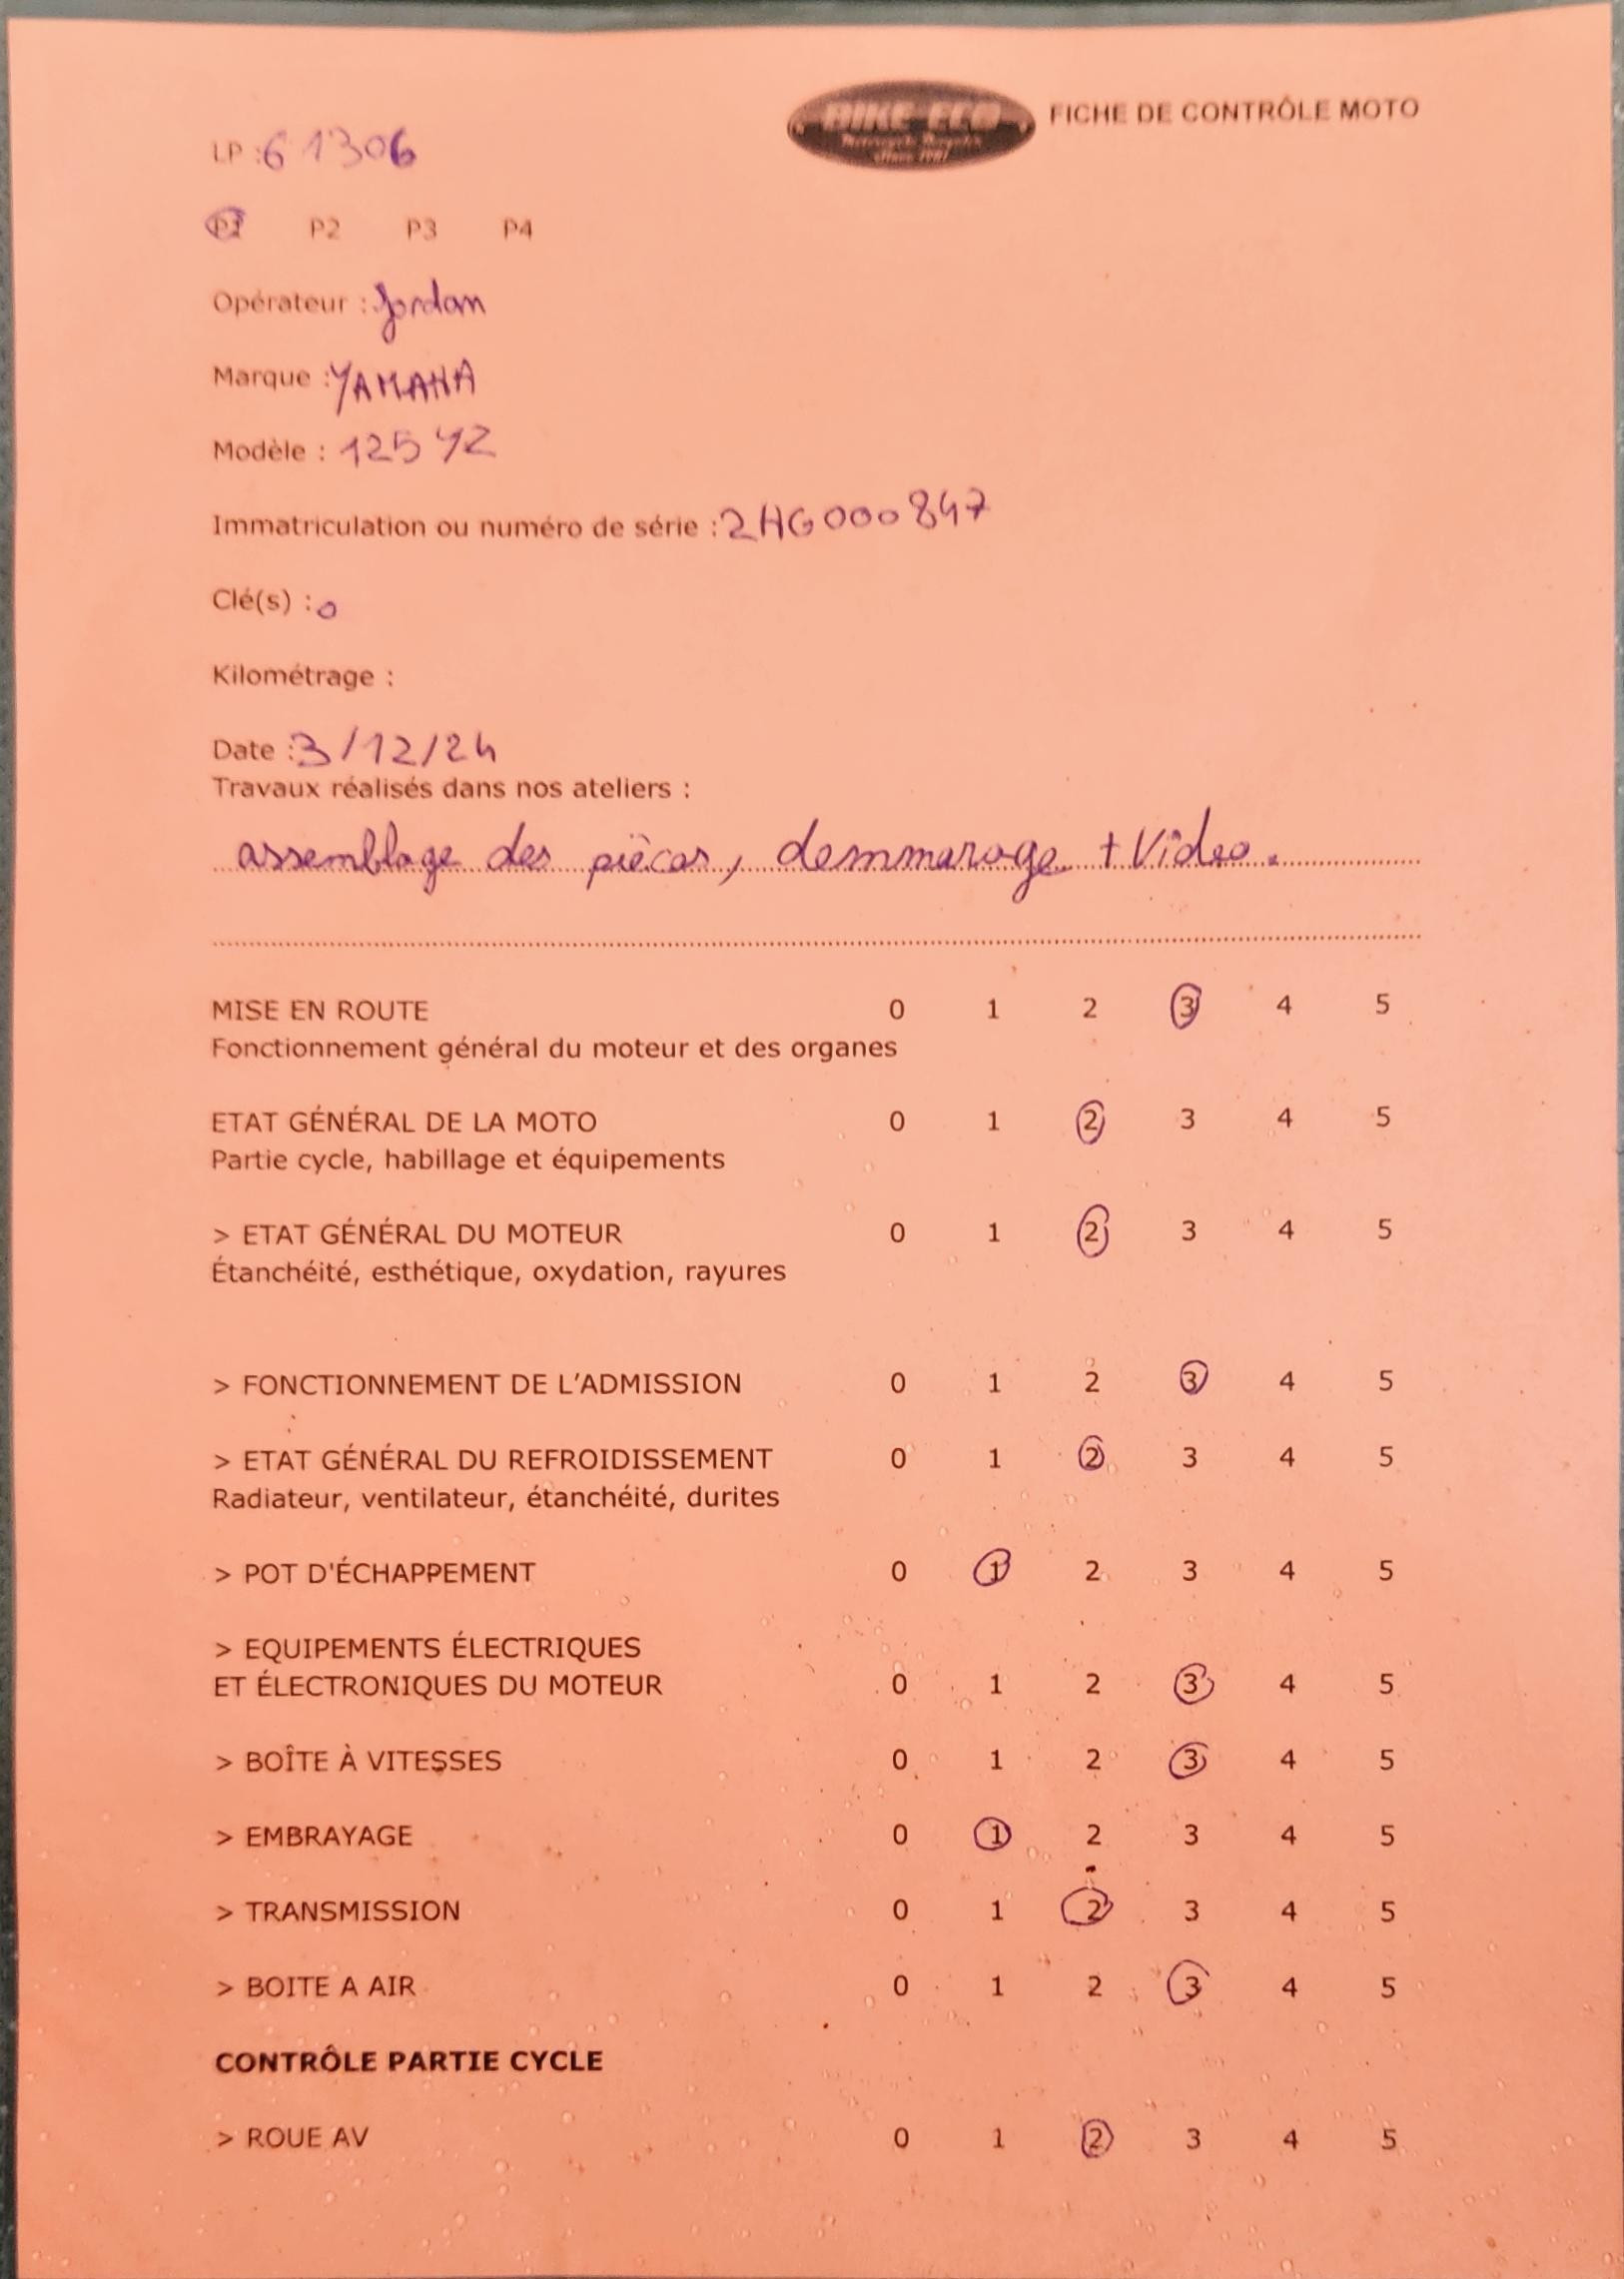 BIKE-ECO
FICHE DE CONTRÔLE MOTO
LP : 61306
P1 P2 P3 P4
Opérateur : Jordan
Marque : YAMAHA
Modèle : 125 YZ
Immatriculation ou numéro de série : 2HG000847
Clé(s) : 0
Kilométrage :
Date : 3/12/24
Travaux réalisés dans nos ateliers :
assemblage des pièces, demmarage + Video.
MISE EN ROUTE 0 1 2 3 4 5
Fonctionnement général du moteur et des organes
ETAT GÉNÉRAL DE LA MOTO 0 1 2 3 4 5
Partie cycle, habillage et équipements
> ETAT GÉNÉRAL DU MOTEUR 0 1 2 3 4 5
Étanchéité, esthétique, oxydation, rayures
> FONCTIONNEMENT DE L'ADMISSION 0 1 2 3 4 5
> ETAT GÉNÉRAL DU REFROIDISSEMENT 0 1 2 3 4 5
Radiateur, ventilateur, étanchéité, durites
> POT D'ÉCHAPPEMENT 0 1 2 3 4 5
> EQUIPEMENTS ÉLECTRIQUES
ET ÉLECTRONIQUES DU MOTEUR 0 1 2 3 4 5
> BOÎTE À VITESSES 0 1 2 3 4 5
> EMBRAYAGE 0 1 2 3 4 5
> TRANSMISSION 0 1 2 3 4 5
> BOITE A AIR 0 1 2 3 4 5
CONTRÔLE PARTIE CYCLE
> ROUE AV 0 1 2 3 4 5